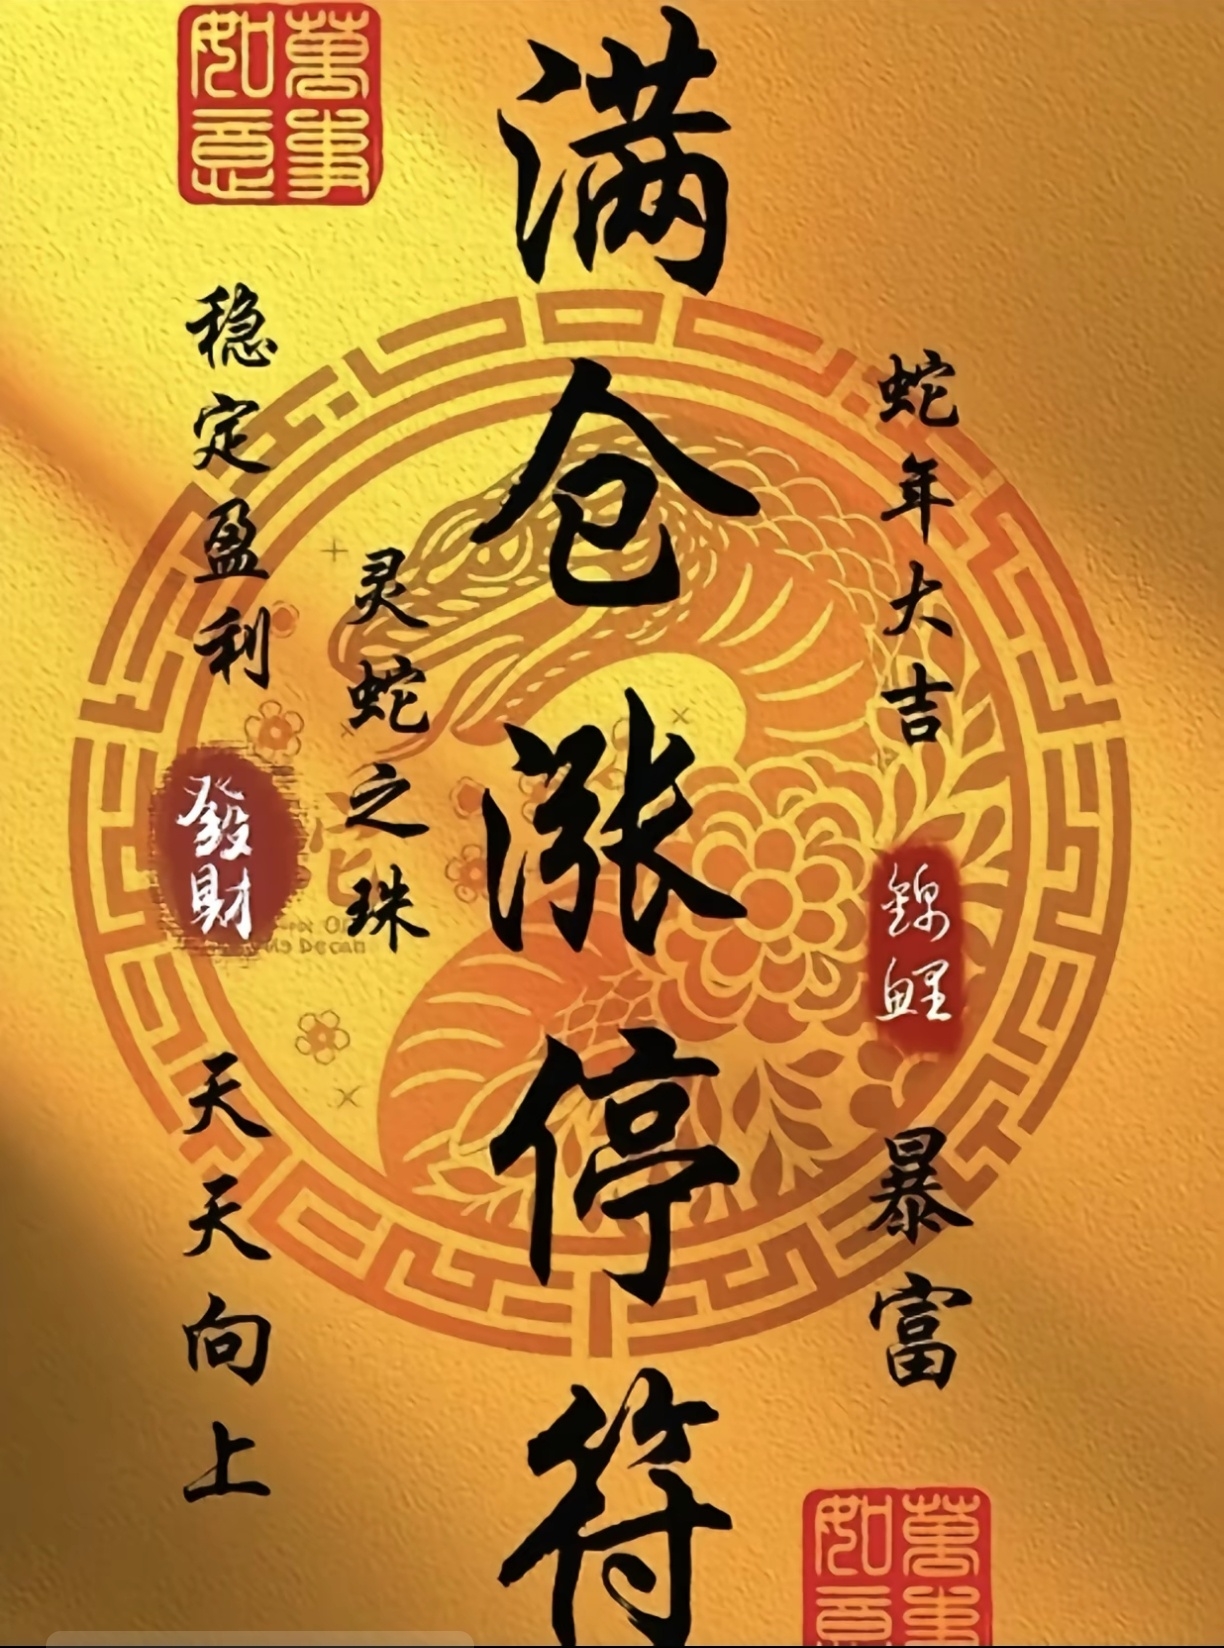 萬事如意
满仓涨停符
蛇年大吉
錦鲤
暴富
灵蛇之珠
稳定盈利
發财
天天向上
萬事如意